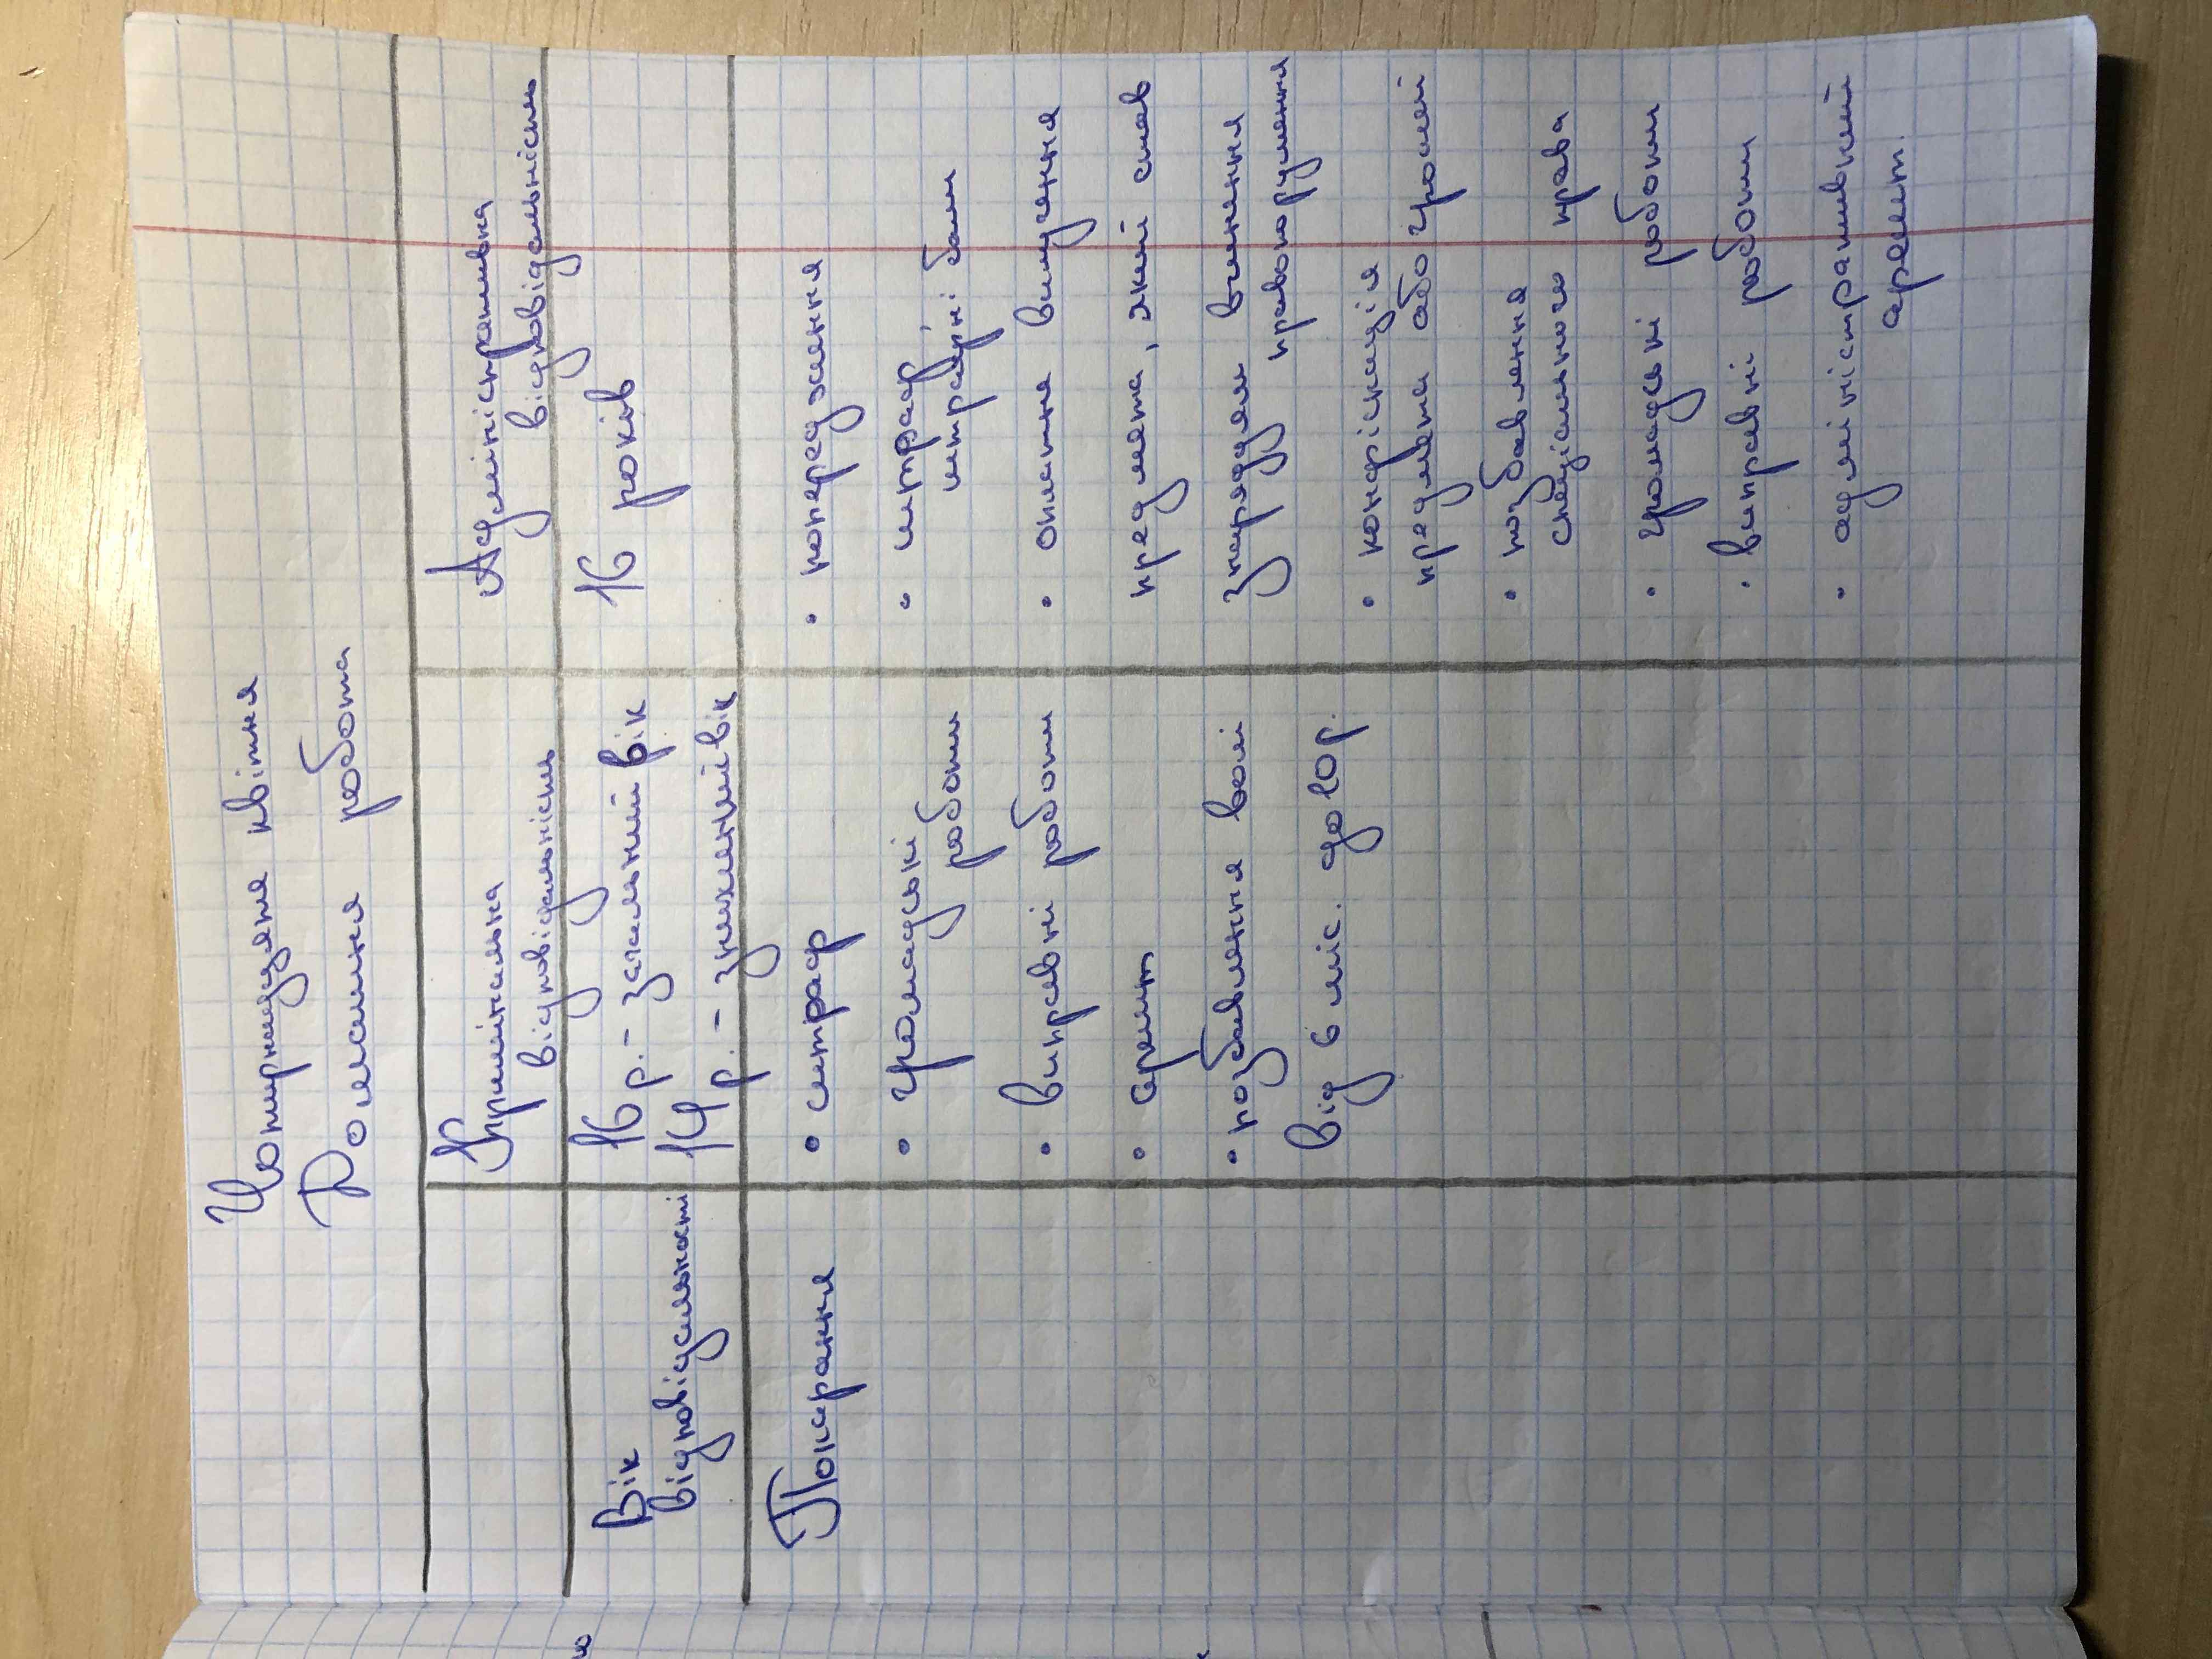 Чотирнадцяте квітня
Домашня робота
Кримінальна
відповідальність
Адміністративна
відповідальність
Вік
відповідальності
16 р. - загальний вік
14 р. - знижений вік
16 років
Покарання
• штраф
• громадські
роботи
• виправні роботи
• арешт
• позбавлення волі
від 6 міс. до 10 р.
• попередження
• штраф,
штрафні бали
• оплатне вилучення
предмета, який став
знаряддям вчинення
правопорушення
• конфіскація
предмета або грошей
• позбавлення
спеціального права
• громадські роботи
• виправні роботи
• адміністративний
арешт.